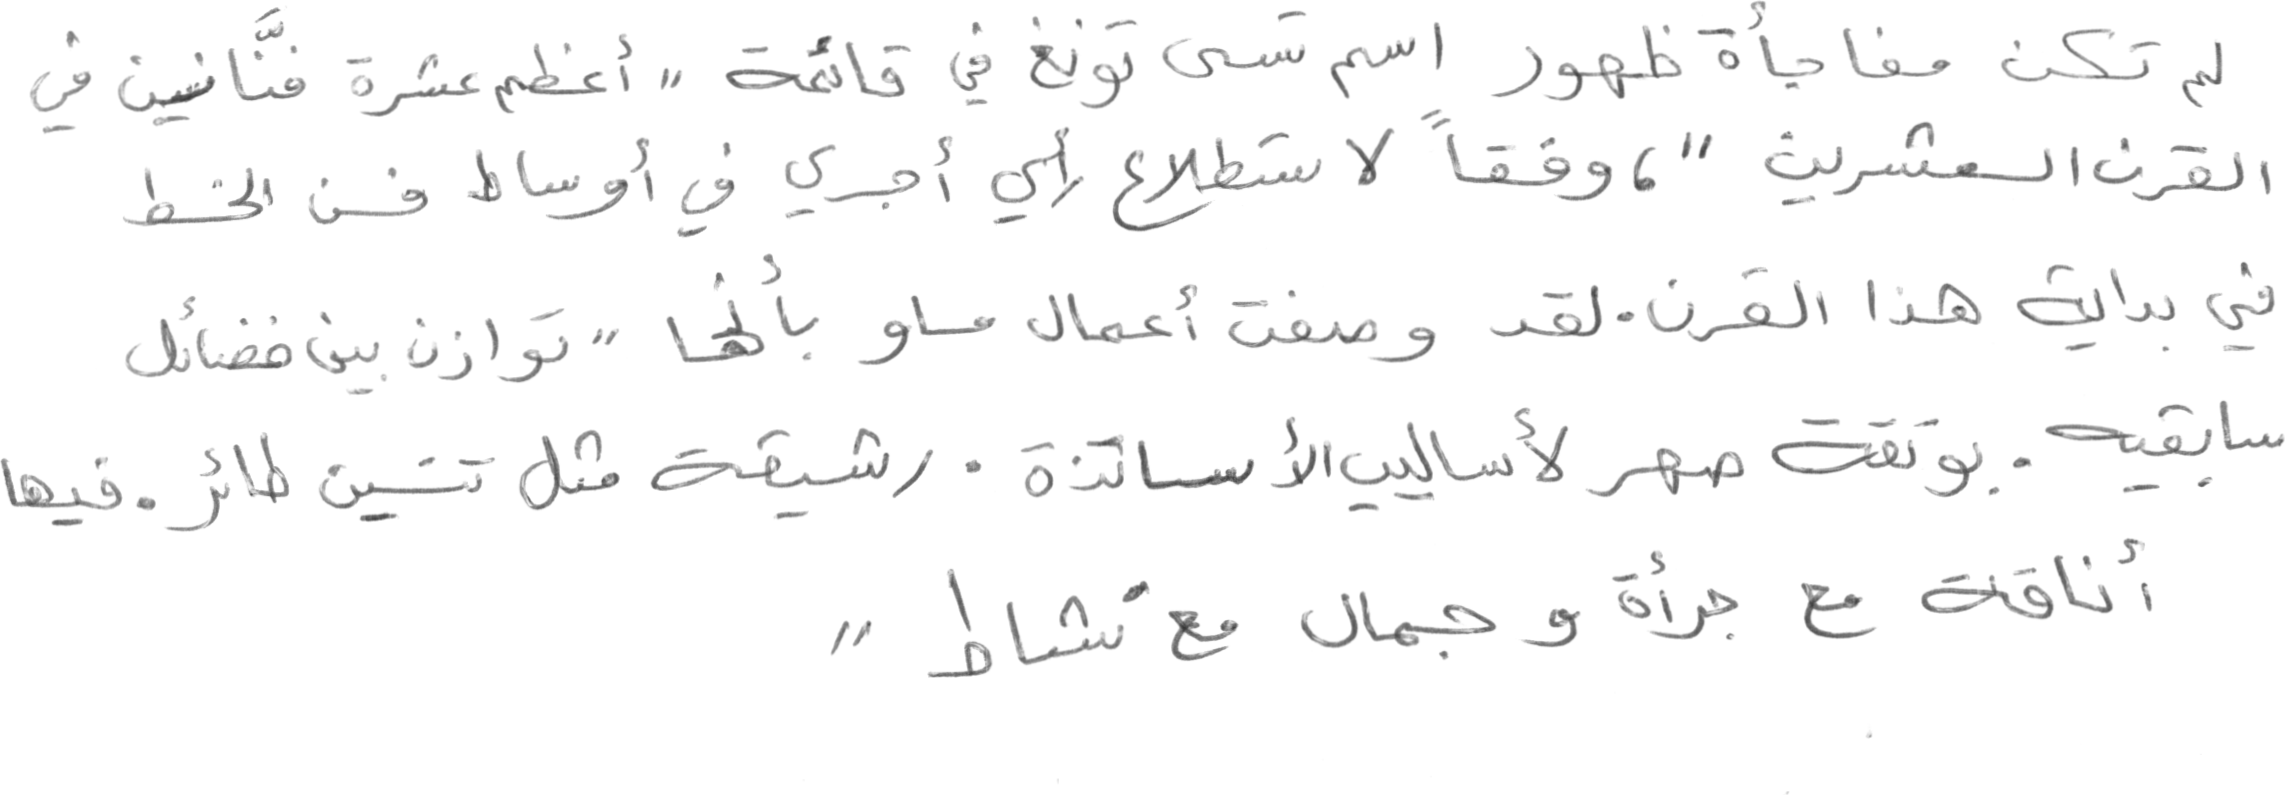 لم تكن مفاجأة ظهور اسم تسى تونغ في قائمة "أعظم عشرة فنَّانين في
القرن العشرين"، وفقاً لاستطلاع رأي أجري في أوساط فن الخط
في بداية هذا القرن. لقد وصفت أعمال ماو بأنها "توازن بين فضائل
سابقيه. بوتقة صهر لأساليب الأساتذة. رشيقة مثل تنين طائر. فيها
أناقة مع جرأة و جمال مع نشاط"